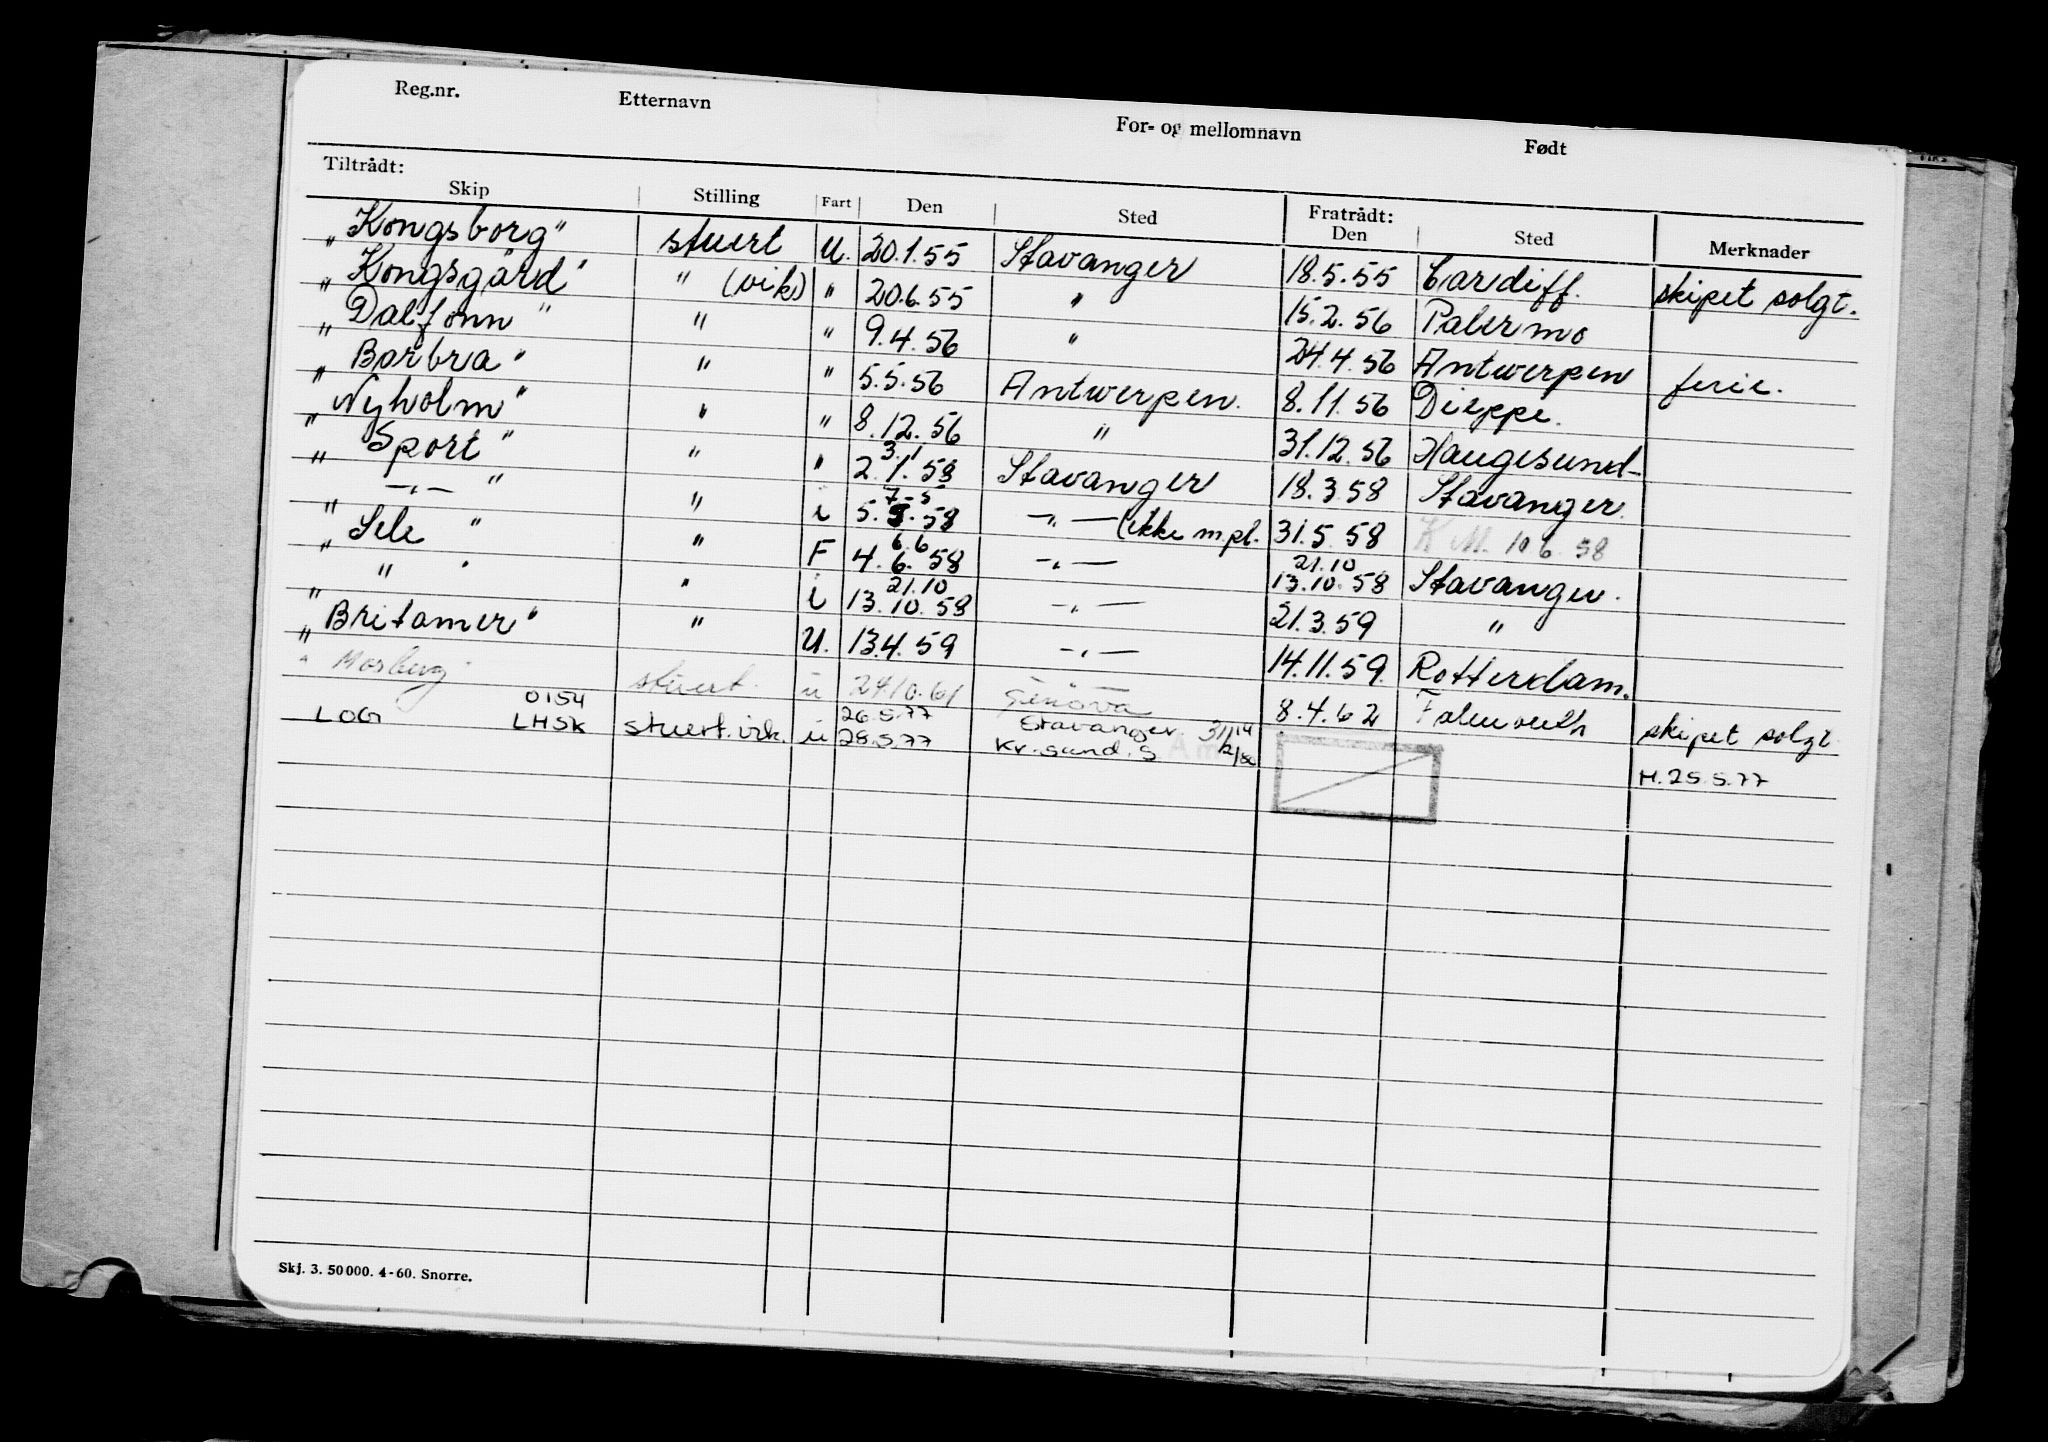 Reg.nr. Etternavn For- og mellomnavn Født
Tiltrådt: Fratrådt:
Skip Stilling Fart Den Sted Den Sted Merknader
"Kongsborg" stuert U. 20.1.55 Stavanger 18.5.55 Cardiff. skipet solgt.
"Kongsgård" " (vik) " 20.6.55 " 15.2.56 Palermo
"Dalfonn" " " 9.4.56 " 24.4.56 Antwerpen ferie.
"Barbra" " " 5.5.56 Antwerpen. 8.11.56 Dieppe.
"Nyholm" " " 8.12.56 " 31.12.56 Haugesund
3.1
"Sport" " " 2.1.58 Stavanger 18.3.58 Stavanger.
7-5
" -"- " " i 5.5.58 -"- (ikke m.pl. 31.5.58 K M. 10.6.58
6.6 21.10
"Sele" " F 4.6.58 -"- 13.10.58 Stavanger.
21.10
" " " " i 13.10.58 -"- 21.3.59 "
"Britamer" " U. 13.4.59 -"- 14.11.59. Rotterdam.
" Mosberg" stuert. u 24.10.61 Genova 8.4.62 Falmouth skipet solgt
0154 26.5.77 Stavanger.
LOG LHSK stuert.vik. u 28.5.77 Kr.sand.S
M.25.5.77
Skj. 3. 50 000. 4-60. Snorre.